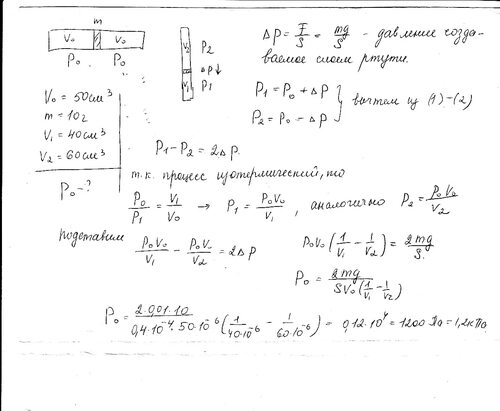 m
V₀ V₀
P₀ P₀
V₂
V₁
P₂
ΔP↓
P₁
ΔP = F/S = mg/S - давление созда-
ваемое слоем ртути.
V₀ = 50см³
m = 10г
V₁ = 40см³
V₂ = 60см³
P₀ - ?
P₁ = P₀ + ΔP
P₂ = P₀ - ΔP } вычтем из (1)-(2)
P₁ - P₂ = 2ΔP.
т.к. процесс изотермический, то
P₀/P₁ = V₁/V₀ → P₁ = P₀V₀/V₁, аналогично P₂ = P₀V₀/V₂
подставим
P₀V₀/V₁ - P₀V₀/V₂ = 2ΔP
P₀V₀(1/V₁ - 1/V₂) = 2mg/S.
P₀ = 2mg/SV₀(1/V₁ - 1/V₂)
P₀ = 2·0,01·10/0,4·10⁻⁴·50·10⁻⁶(1/40·10⁻⁶ - 1/60·10⁻⁶) = 0,12·10⁴ = 1200 Па = 1,2кПа